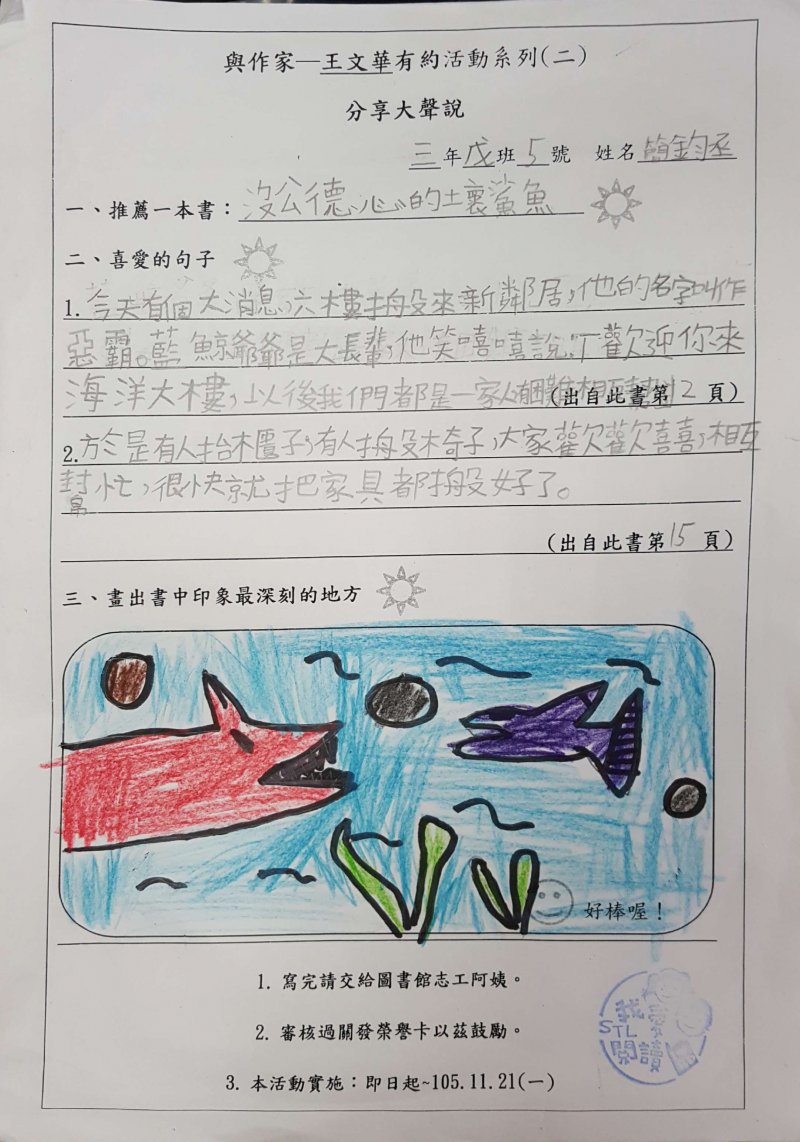 與作家—王文華有約活動系列(二)
分享大聲說
三年戊班5號 姓名簡鈞丞
一、推薦一本書：沒公德心的壞鯊魚
二、喜愛的句子
1.今天有個大消息，六樓搬來新鄰居，他的名字叫作
惡霸。藍鯨爺爺是大長輩，他笑嘻嘻說：「歡迎你來
海洋大樓，以後我們都是一家人有困難相
(出自此書第12頁)
2.於是有人抬木櫃子，有人搬椅子，大家歡歡喜喜，相互
幫忙，很快就把家具都搬好了。
(出自此書第15頁)
三、畫出書中印象最深刻的地方
好棒喔！
1. 寫完請交給圖書館志工阿姨。
2. 審核過關發榮譽卡以茲鼓勵。
3. 本活動實施：即日起~105.11.21(一)
我愛
STL
閱讀